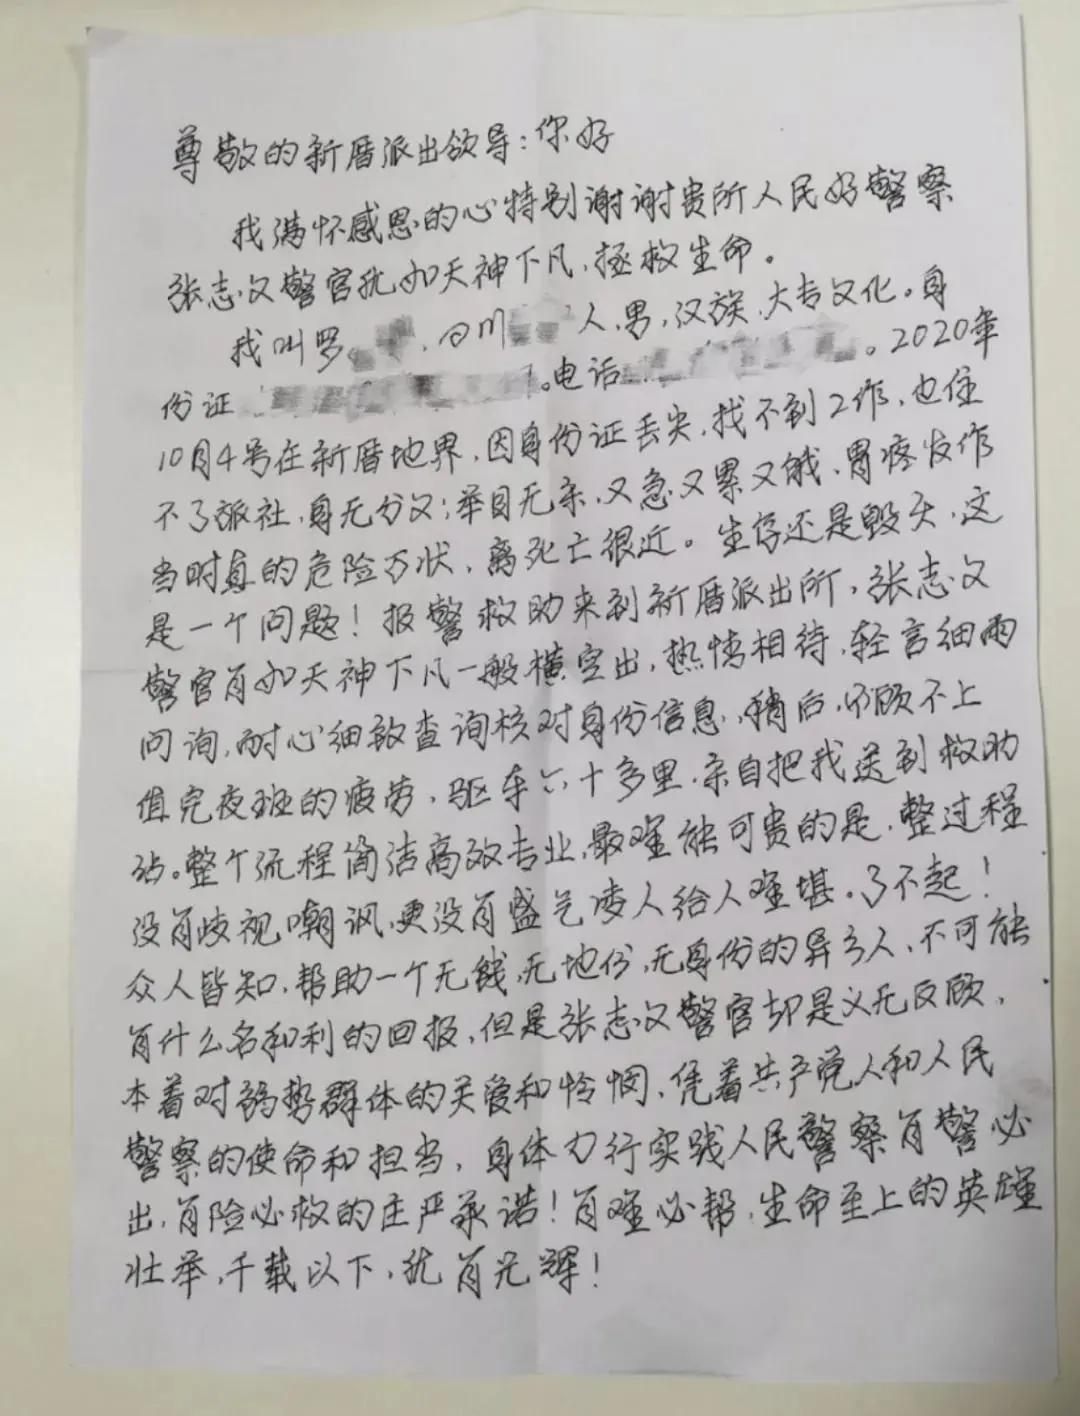 尊敬的新厝派出领导：你好
我满怀感恩的心特别谢谢贵所人民好警察
张志文警官犹如天神下凡，拯救生命。
我叫罗 ，四川 人，男，汉族，大专文化。身
份证 。电话 。2020年
10月4号在新厝地界，因身份证丢失，找不到工作，也住
不了旅社，身无分文；举目无亲，又急又累又饿，胃疼发作
当时真的危险万状，离死亡很近。生存还是毁灭，这
是一个问题！报警救助来到新厝派出所，张志文
警官有如天神下凡一般横空出，热情相待，轻言细雨
问询，耐心细致查询核对身份信息，稍后，顾不上
值完夜班的疲劳，驱车六十多里，亲自把我送到救助
站。整个流程简洁高效专业，最难能可贵的是，整过程
没有歧视嘲讽，更没有盛气凌人给人难堪。了不起！
众人皆知，帮助一个无钱，无地位，无身份的异乡人，不可能
有什么名和利的回报，但是张志文警官却是义无反顾，
本着对弱势群体的关爱和怜悯，凭着共产党人和人民
警察的使命和担当，身体力行实践人民警察有警必
出，有险必救的庄严承诺！有难必帮，生命至上的英雄
壮举，千载以下，犹有光辉！